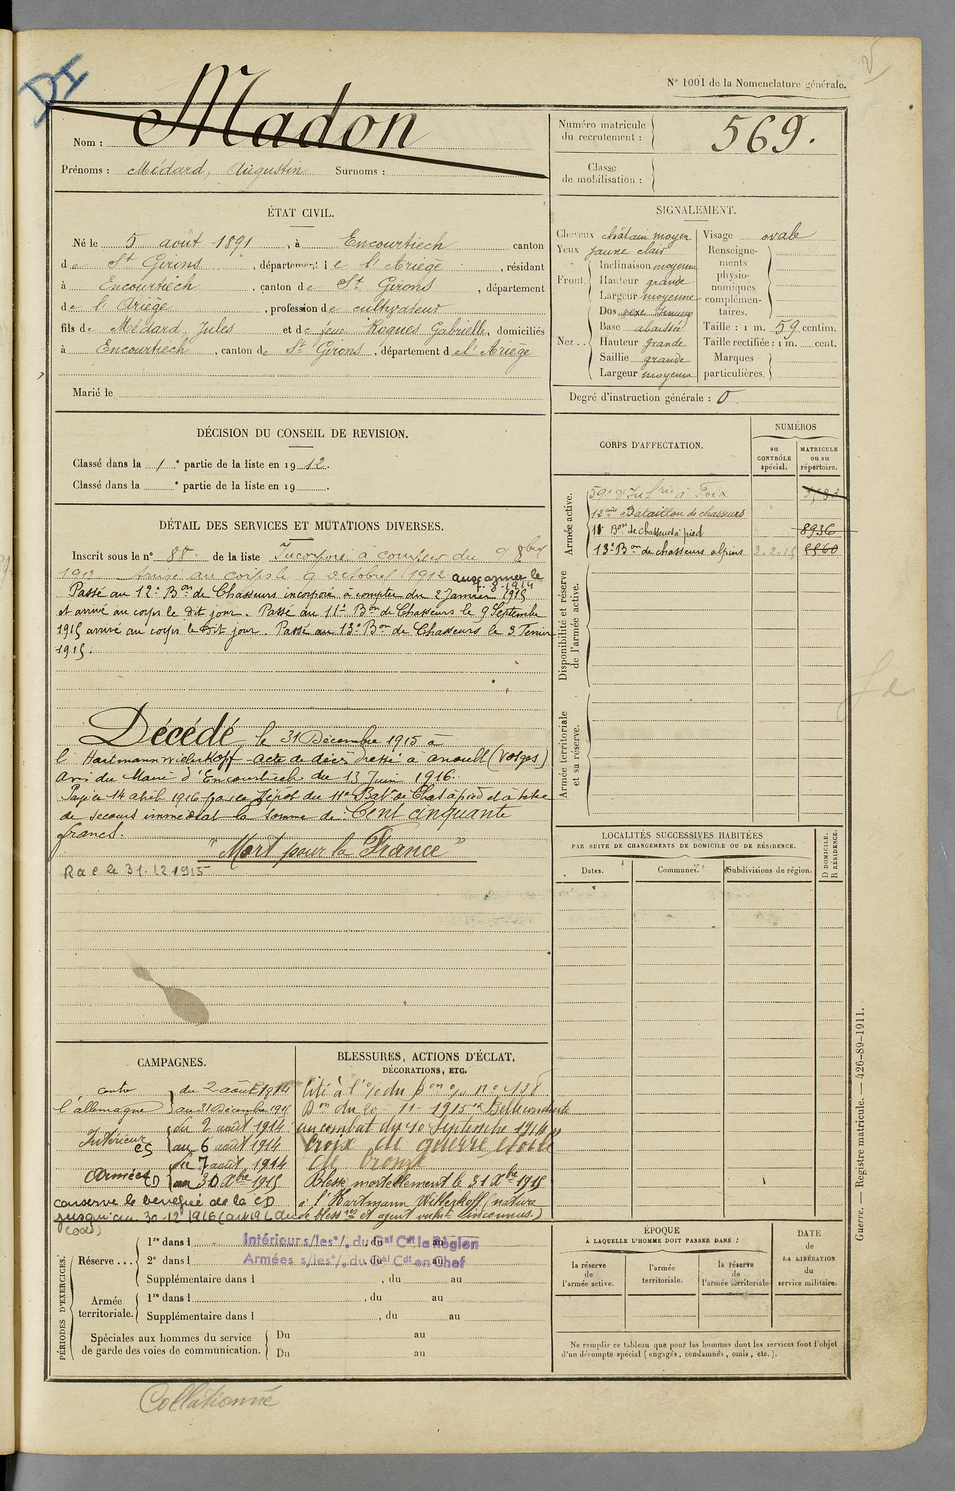 DI
N° 1001 de la Nomenclature générale.
Nom : Madon
Prénoms : Médard, Augustin Surnoms :
Numéro matricule du recrutement : 569.
Classe de mobilisation :
ÉTAT CIVIL.
Né le 5 août 1891, à Encourtiech canton
de St Girons, département de l'Ariège, résidant
à Encourtiech, canton de St Girons, département
de l'Ariège, profession de cultivateur
fils de Médard, Jules et de feue Roques Gabrielle, domiciliés
à Encourtiech, canton de St Girons, département de l'Ariège
Marié le
SIGNALEMENT.
Cheveux châtain moyen Visage ovale
Yeux jaune clair
Front. Inclinaison moyenne
Hauteur grande
Largeur moyenne
Renseignements physionomiques complémentaires.
Nez.. Dos
Base abaissée
Hauteur grande
Saillie grande
Largeur moyenne
Taille : 1 m. 59 centim.
Taille rectifiée : 1 m. cent.
Marques particulières.
Degré d'instruction générale : 0
DÉCISION DU CONSEIL DE REVISION.
Classé dans la 1e partie de la liste en 1912.
Classé dans la e partie de la liste en 19 .
CORPS D'AFFECTATION.
NUMÉROS
au CONTRÔLE spécial.
MATRICULE ou au répertoire.
Armée active.
59e d'Infrie à Foix
12me Bataillon de chasseurs
11e Bon de chasseurs à pied 8936
13e Bon de chasseurs alpins
Disponibilité et réserve de l'armée active.
Armée territoriale et sa réserve.
DÉTAIL DES SERVICES ET MUTATIONS DIVERSES.
Inscrit sous le n° 88 de la liste Incorporé à compter du 9 8bre
1912 Arrivé au corps le 9 octobre 1912 aux armées le 7-8-1914
Passé au 12e Bon de Chasseurs incorporé à compter du 2 Janvier 1915
et arrivé au corps le dit jour. Passé au 11e Bon de Chasseurs le 9 Septembre
1915 arrivé au corps le dit jour. Passé au 13e Bon de Chasseurs le 3
1915.
Décédé le 31 Décembre 1915 à
l'Hartmannwillerkopf acte de décès dressé à anould (Vosges)
avis du Maire d'Encourtiech du 13 Juin 1916.
Payé le 14 avril 1916 par le Dépôt du 11e Baton de Chas à pied et à titre
de secours immédiat la somme de Cent cinquante
francs.
"Mort pour la France"
R d C le 31-12 1915
LOCALITÉS SUCCESSIVES HABITÉES
PAR SUITE DE CHANGEMENTS DE DOMICILE OU DE RÉSIDENCE.
Dates.
Communes.
Subdivisions de région.
D DOMICILE.
R RÉSIDENCE.
CAMPAGNES.
contre l'allemagne du 2 août 1914
au 31 Décembre 1915
Intérieur CS du 2 août 1914
au 6 août 1914
Armées CD du 7 août 1914
au 30 Xbre 1915
conserve le bénéfice de la CD
jusqu'au 30-12-1916
BLESSURES, ACTIONS D'ÉCLAT,
DÉCORATIONS, ETC.
Cité à l'o/ du Bon o/ n° 128
Bon du 20-11-1915
au combat du 10 Septembre 1914
Croix de guerre étoile
de bronze
Blessé mortellement le 31 Xbre 1915
à l'Hartmann Willerkopf (nature
de blessure et agent vulnt inconnus.)
PÉRIODES D'EXERCICES.
Réserve... 1re dans l , du au
2e dans l , du au
Supplémentaire dans l , du au
Intérieur s/les o/ du Gal Ct la Région
Armées s/les o/ du Gal Cdt en Chef
Armée territoriale. 1re dans l , du au
Supplémentaire dans l , du au
Spéciales aux hommes du service de garde des voies de communication. Du au
Du au
ÉPOQUE
À LAQUELLE L'HOMME DOIT PASSER DANS :
la réserve de l'armée active.
l'armée territoriale.
la réserve de l'armée territoriale
DATE de LA LIBÉRATION du service militaire.
Ne remplir ce tableau que pour les hommes dont les services font l'objet
d'un décompte spécial (engagés, condamnés, omis, etc.).
Guerre. — Registre matricule. — 426-89-1911.
Collationné